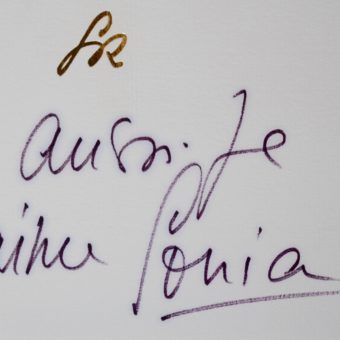 SR
aussi. Je
Sonia